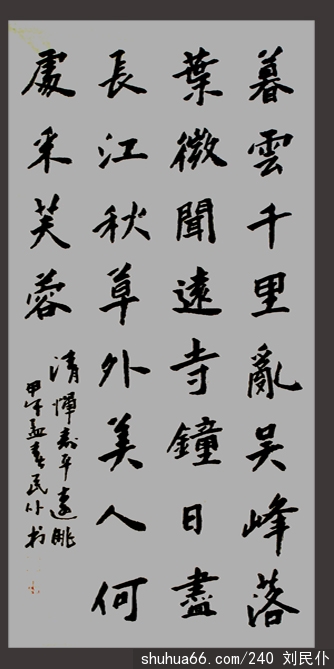 暮雲千里亂吳峰落
葉微聞遠寺鐘日盡
長江秋草外美人何
處采芙蓉
清惲壽平遠眺
甲午孟春民仆书
shuhua66.com/240 刘民仆